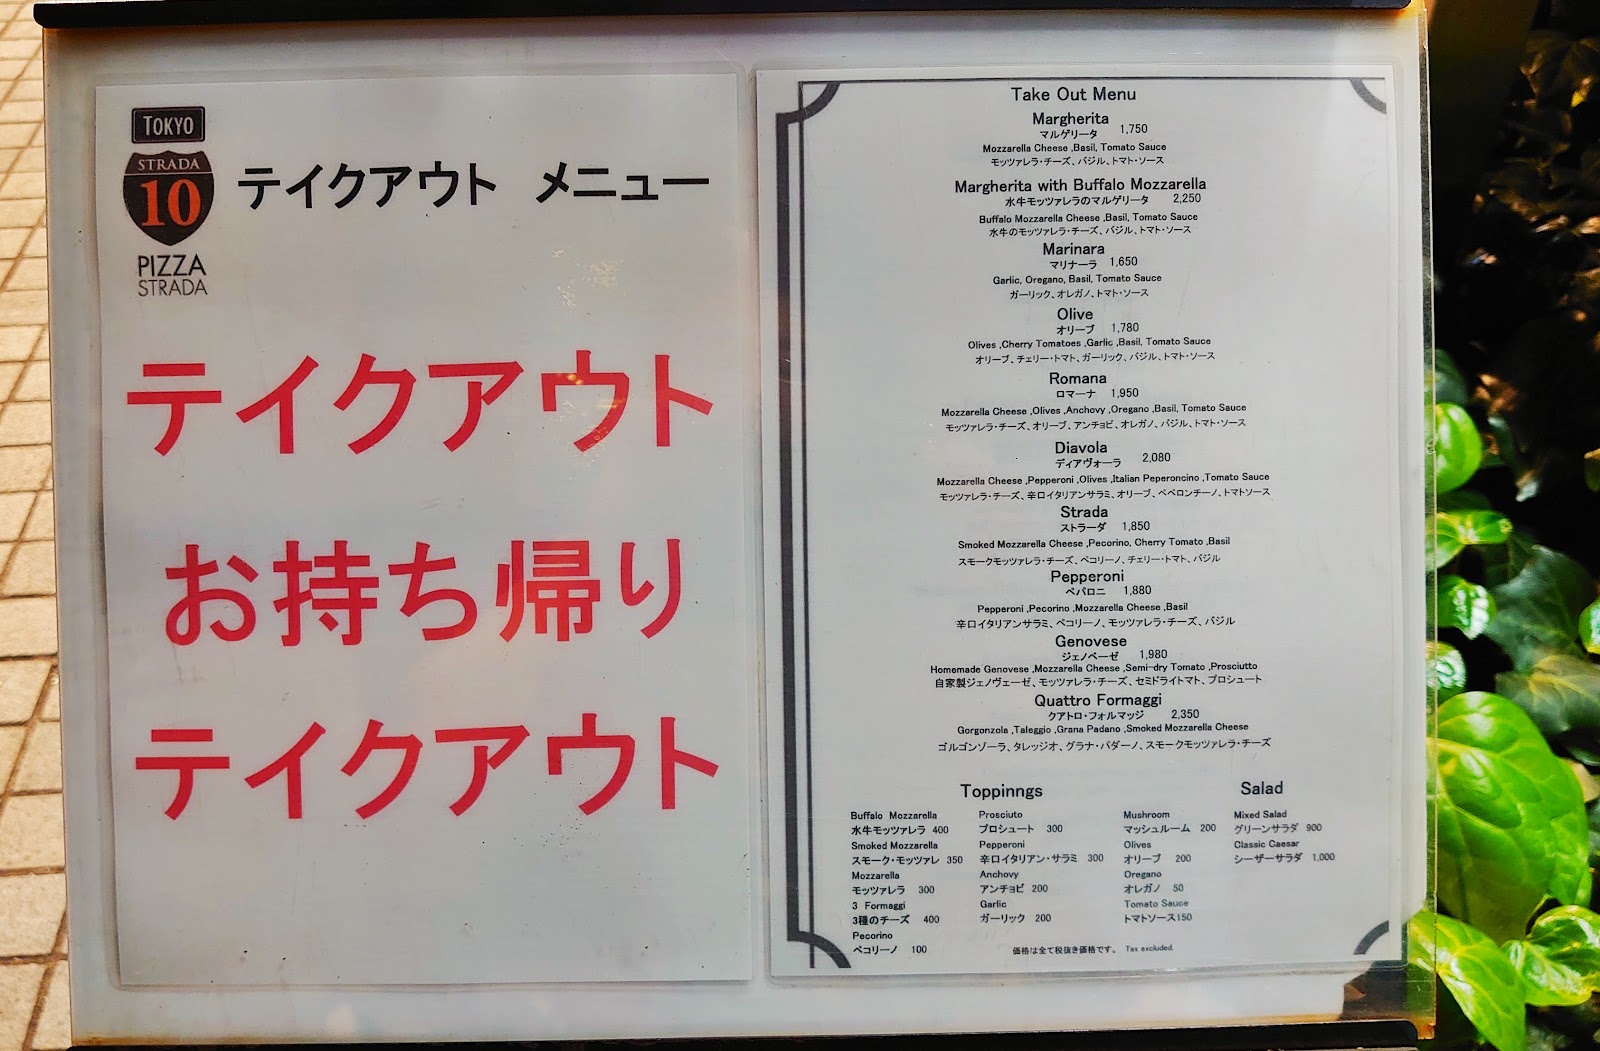 TOKYO
STRADA
10
PIZZA
STRADA
テイクアウト メニュー
テイクアウト
お持ち帰り
テイクアウト
Take Out Menu
Margherita
マルゲリータ 1,750
Mozzarella Cheese ,Basil, Tomato Sauce
モッツァレラ・チーズ、バジル、トマト・ソース
Margherita with Buffalo Mozzarella
水牛モッツァレラのマルゲリータ 2,250
Buffalo Mozzarella Cheese ,Basil, Tomato Sauce
水牛のモッツァレラ・チーズ、バジル、トマト・ソース
Marinara
マリナーラ 1,650
Garlic, Oregano, Basil, Tomato Sauce
ガーリック、オレガノ、トマト・ソース
Olive
オリーブ 1,780
Olives ,Cherry Tomatoes ,Garlic ,Basil, Tomato Sauce
オリーブ、チェリー・トマト、ガーリック、バジル、トマト・ソース
Romana
ロマーナ 1,950
Mozzarella Cheese ,Olives ,Anchovy ,Oregano ,Basil, Tomato Sauce
モッツァレラ・チーズ、オリーブ、アンチョビ、オレガノ、バジル、トマト・ソース
Diavola
ディアヴォーラ 2,080
Mozzarella Cheese ,Pepperoni ,Olives ,Italian Peperoncino ,Tomato Sauce
モッツァレラ・チーズ、辛口イタリアンサラミ、オリーブ、ペペロンチーノ、トマトソース
Strada
ストラーダ 1,850
Smoked Mozzarella Cheese ,Pecorino, Cherry Tomato ,Basil
スモークモッツァレラ・チーズ、ペコリーノ、チェリー・トマト、バジル
Pepperoni
ペパロニ 1,880
Pepperoni ,Pecorino ,Mozzarella Cheese ,Basil
辛口イタリアンサラミ、ペコリーノ、モッツァレラ・チーズ、バジル
Genovese
ジェノベーゼ 1,980
Homemade Genovese ,Mozzarella Cheese ,Semi-dry Tomato ,Prosciutto
自家製ジェノヴェーゼ、モッツァレラ・チーズ、セミドライトマト、プロシュート
Quattro Formaggi
クアトロ・フォルマッジ 2,350
Gorgonzola ,Taleggio ,Grana Padano ,Smoked Mozzarella Cheese
ゴルゴンゾーラ、タレッジオ、グラナ・パダーノ、スモークモッツァレラ・チーズ
Toppinngs
Buffalo Mozzarella
水牛モッツァレラ 400
Smoked Mozzarella
スモーク・モッツァレ 350
Mozzarella
モッツァレラ 300
3 Formaggi
3種のチーズ 400
Pecorino
ペコリーノ 100
Prosciuto
プロシュート 300
Pepperoni
辛口イタリアン・サラミ 300
Anchovy
アンチョビ 200
Garlic
ガーリック 200
Mushroom
マッシュルーム 200
Olives
オリーブ 200
Oregano
オレガノ 50
Tomato Sauce
トマトソース150
Salad
Mixed Salad
グリーンサラダ 900
Classic Caesar
シーザーサラダ 1,000
価格は全て税抜き価格です。 Tax excluded.